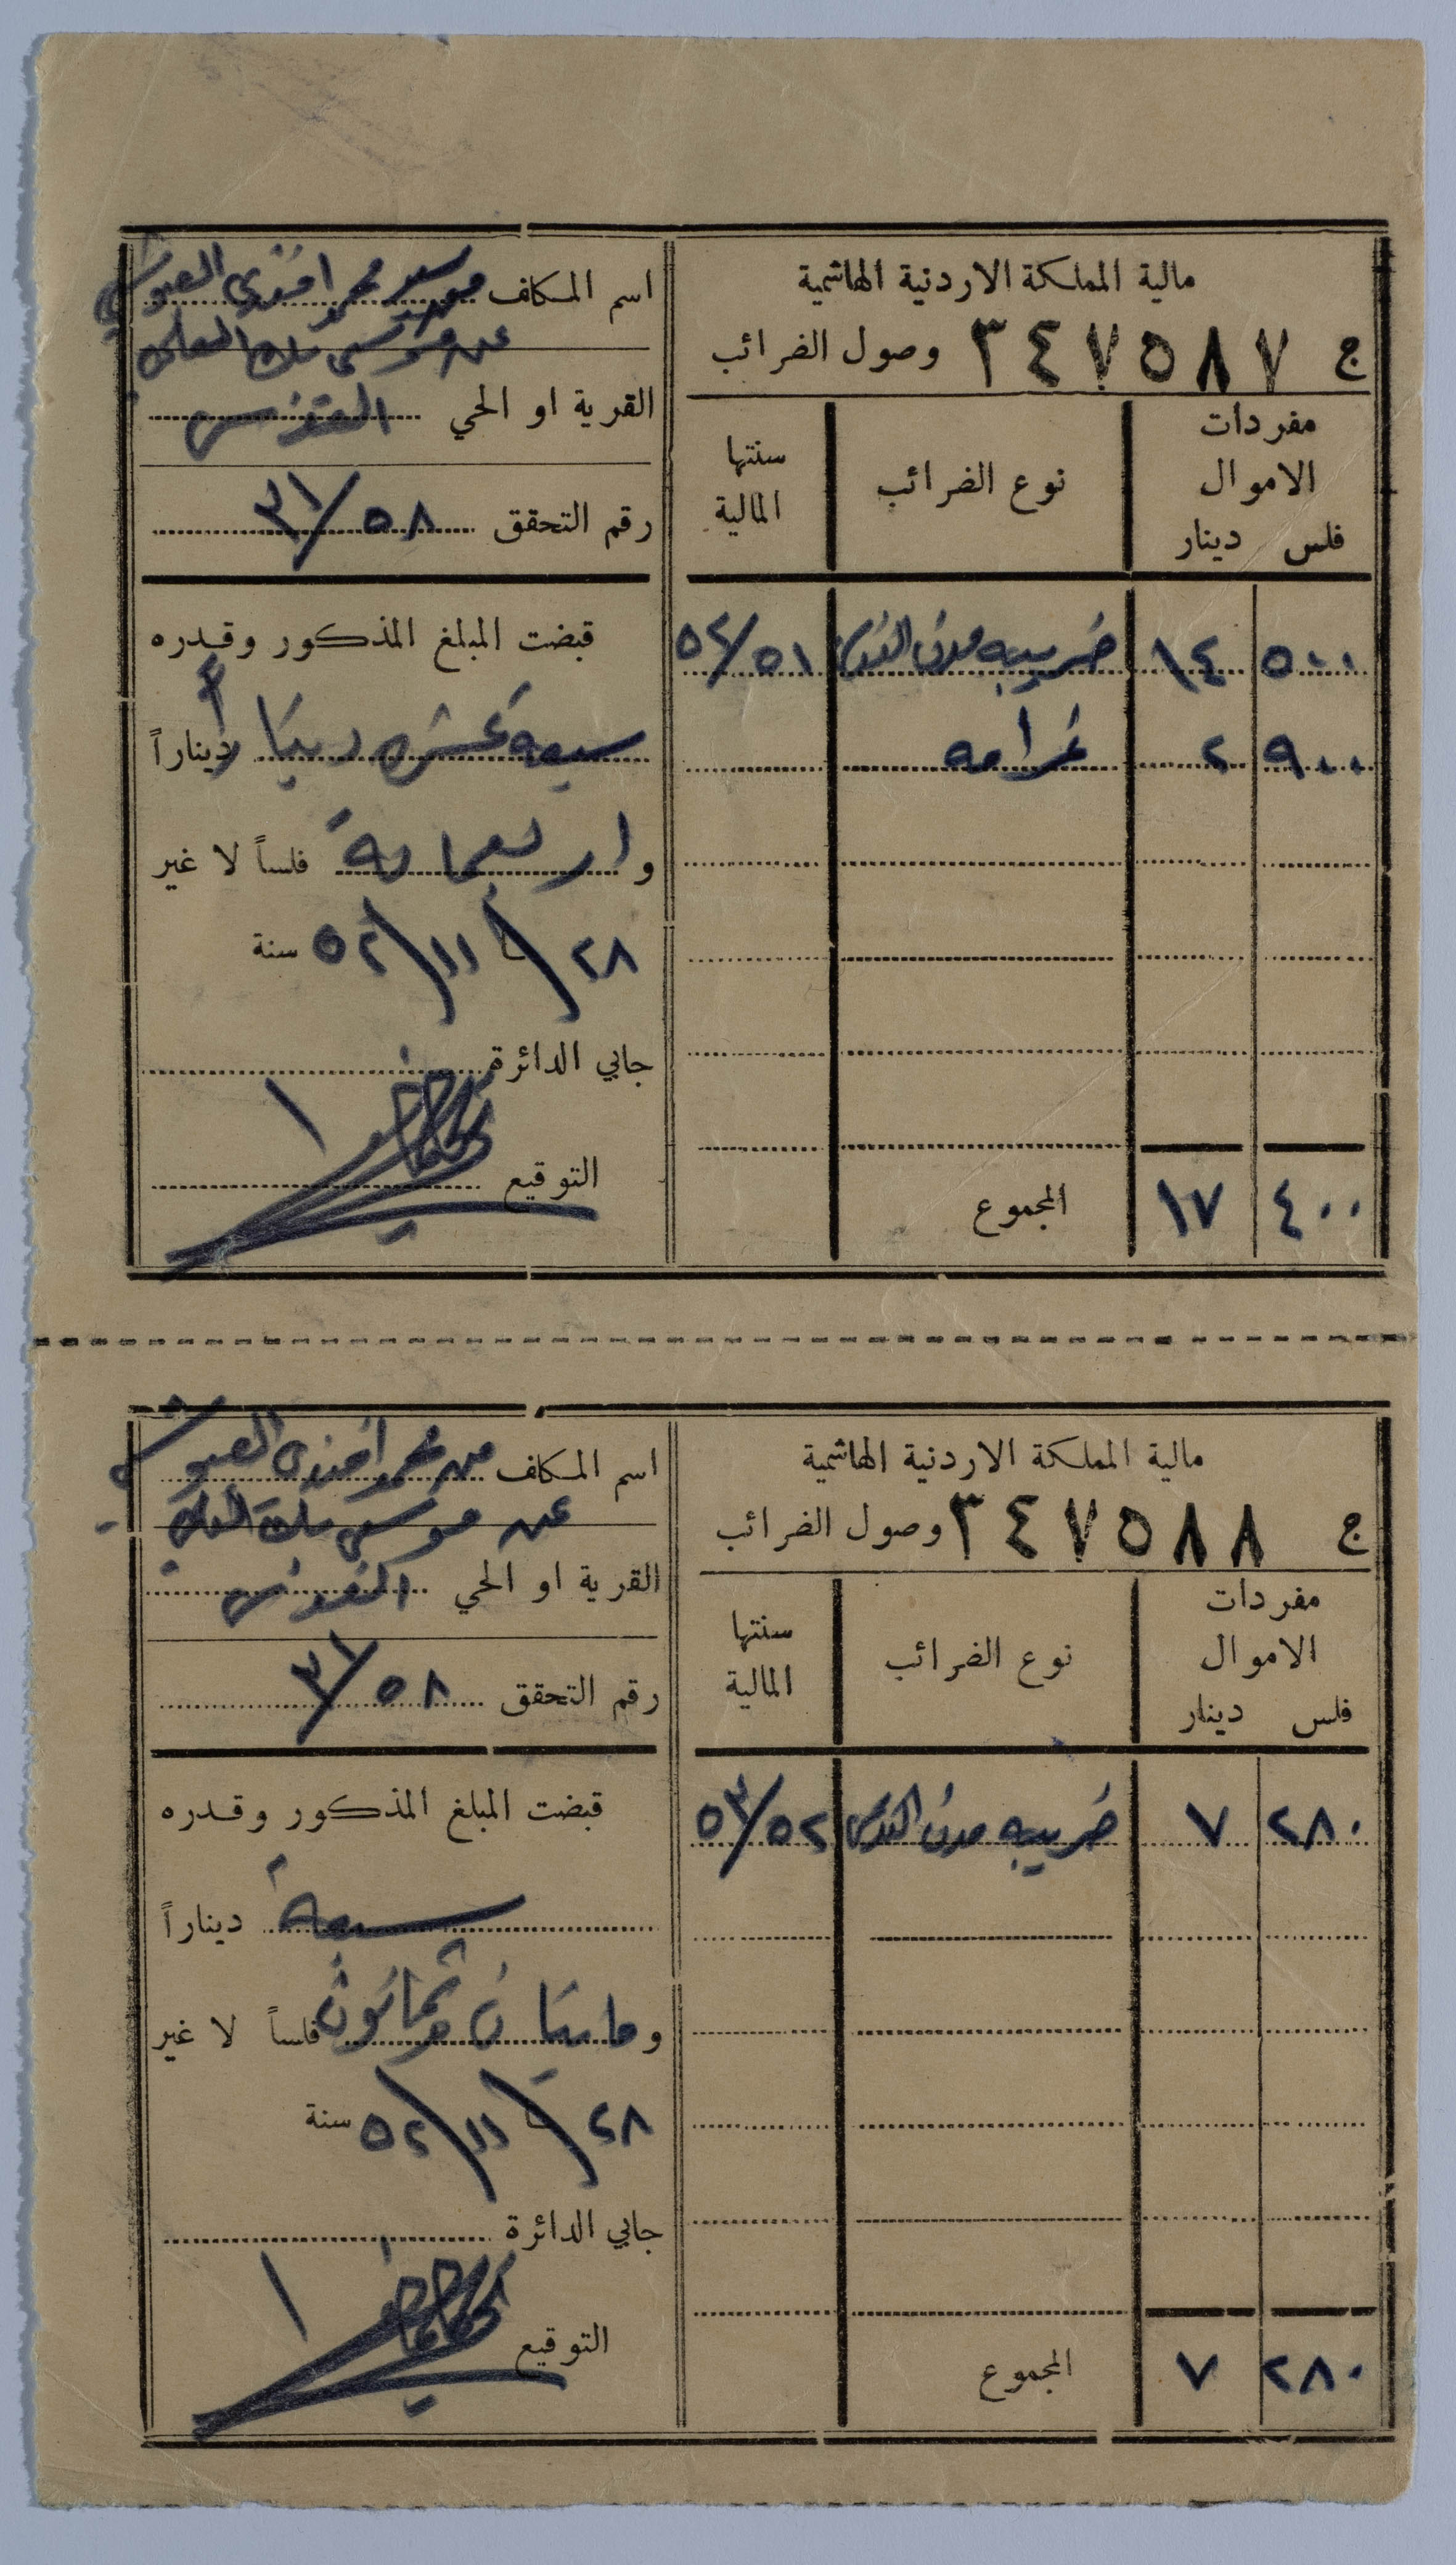 مالية المملكة الاردنية الهاشمية
ج ٣٤٧٥٨٧ وصول الضرائب
مفردات الاموال
فلس دينار
نوع الضرائب
سنتها المالية
٥٠٠ ١٤ ضريبه مدن القدس ٥٢/٥١
٩٠٠ ٢ غرامه
٤٠٠ ١٧ المجموع
اسم المكلف محمد افندي
عن موسى بك العلمي
القرية او الحي القدس
رقم التحقق ٣١/٥٨
قبضت المبلغ المذكور وقدره
سبعة عشر دينارا ديناراً
و اربعماية فلساً لا غير
٢٨/١١/٥٢ سنة
جابي الدائرة
التوقيع
مالية المملكة الاردنية الهاشمية
ج ٣٤٧٥٨٨ وصول الضرائب
مفردات الاموال
فلس دينار
نوع الضرائب
سنتها المالية
٢٨٠ ٧ ضريبه مدن القدس ٥٣/٥٢
٢٨٠ ٧ المجموع
اسم المكلف محمد افندي
عن موسى بك العلمي
القرية او الحي القدس
رقم التحقق ٣١/٥٨
قبضت المبلغ المذكور وقدره
سبعة ديناراً
و مايتان وثمانون فلساً لا غير
٢٨/١١/٥٢ سنة
جابي الدائرة
التوقيع